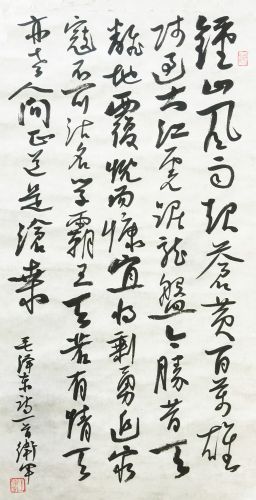 鐘山风雨起蒼黄百萬雄
师过大江虎踞龙盤今勝昔天
翻地覆慨而慷宜将剩勇追穷
寇不可沽名学霸王天若有情天
亦老人间正道是滄桑
毛泽东诗一首衛军